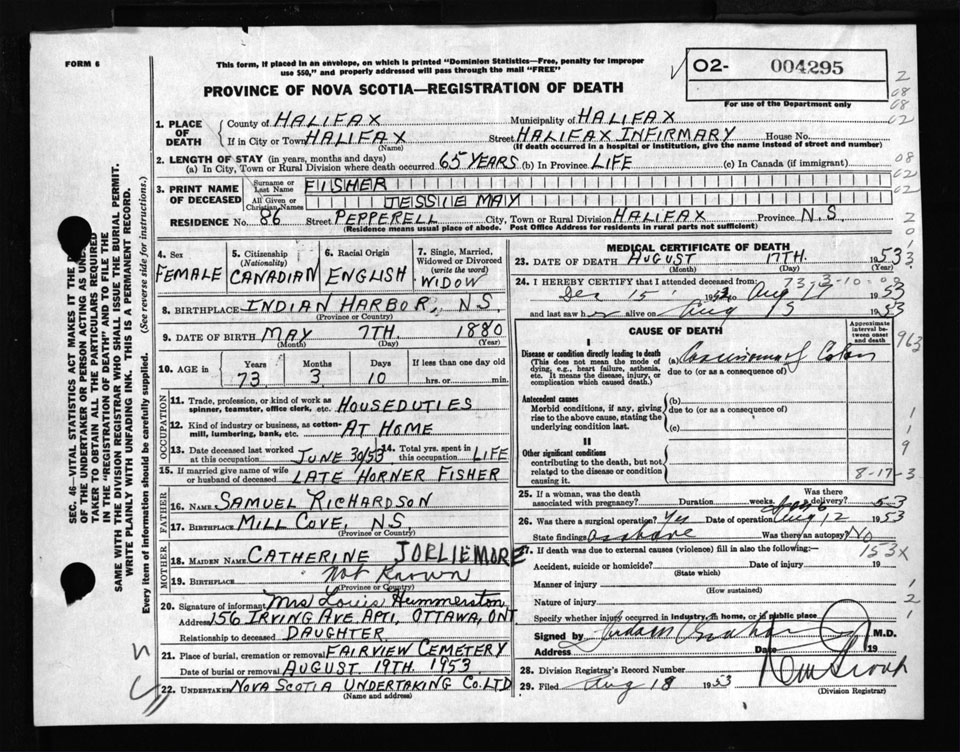 FORM 6
This form, if placed in an envelope, on which is printed "Dominion Statistics—Free, penalty for improper
use $50," and properly addressed will pass through the mail "FREE"
PROVINCE OF NOVA SCOTIA—REGISTRATION OF DEATH
O2- 004295
For use of the Department only
1. PLACE OF DEATH
County of HALIFAX Municipality of HALIFAX
If in City or Town HALIFAX (Name) Street HALIFAX INFIRMARY House No.
(If death occurred in a hospital or institution, give the name instead of street and number)
2. LENGTH OF STAY (in years, months and days)
(a) In City, Town or Rural Division where death occurred 65 YEARS (b) In Province LIFE (c) In Canada (if immigrant)
3. PRINT NAME OF DECEASED
Surname or Last Name FISHER
All Given or Christian Names JESSIE MAY
RESIDENCE No. 86 Street PEPPERELL City, Town or Rural Division HALIFAX Province N.S.
(Residence means usual place of abode. Post Office Address for residents in rural parts not sufficient)
SEC. 46—VITAL STATISTICS ACT MAKES IT THE
OF THE UNDERTAKER OR PERSON ACTING AS
TAKER TO OBTAIN ALL THE PARTICULARS REQUIRED
IN THE "REGISTRATION OF DEATH" AND TO FILE THE
SAME WITH THE DIVISION REGISTRAR WHO SHALL ISSUE THE BURIAL PERMIT.
WRITE PLAINLY WITH UNFADING INK. THIS IS A PERMANENT RECORD.
Every item of information should be carefully supplied. (See reverse side for instructions.)
4. Sex FEMALE
5. Citizenship (Nationality) CANADIAN
6. Racial Origin ENGLISH
7. Single, Married, Widowed or Divorced (write the word) WIDOW
8. BIRTHPLACE INDIAN HARBOR, N.S.
(Province or Country)
9. DATE OF BIRTH MAY 7TH. 1880
(Month) (Day) (Year)
10. AGE in Years 73 Months 3 Days 10 If less than one day old hrs. or min.
OCCUPATION
11. Trade, profession, or kind of work as spinner, teamster, office clerk, etc. HOUSEDUTIES
12. Kind of industry or business, as cotton-mill, lumbering, bank, etc. AT HOME
13. Date deceased last worked at this occupation JUNE 30/53 14. Total yrs. spent in this occupation LIFE
15. If married give name of wife or husband of deceased LATE HORNER FISHER
FATHER
16. NAME SAMUEL RICHARDSON
17. BIRTHPLACE MILL COVE, N.S.
(Province or Country)
MOTHER
18. MAIDEN NAME CATHERINE JOELIEMORE
19. BIRTHPLACE Not Known
(Province or Country)
20. Signature of informant Mrs Louis Hummerston
Address 156 IRVING AVE. APT 1, OTTAWA, ONT
Relationship to deceased DAUGHTER
21. Place of burial, cremation or removal FAIRVIEW CEMETERY
Date of burial or removal AUGUST 19TH. 1953
22. UNDERTAKER NOVA SCOTIA UNDERTAKING CO. LTD
(Name and address)
MEDICAL CERTIFICATE OF DEATH
23. DATE OF DEATH AUGUST 17TH. 1953
(Month) (Day) (Year)
24. I HEREBY CERTIFY that I attended deceased from:
Dec 15 Aug 1953
and last saw her alive on Aug 15 1953
CAUSE OF DEATH
Approximate interval between onset and death
I
Disease or condition directly leading to death (a) Carcinoma of Colon
(This does not mean the mode of dying, e.g., heart failure, asthenia, etc. It means the disease, injury, or complication which caused death.)
due to (or as a consequence of)
Antecedent causes
Morbid conditions, if any, giving rise to the above cause, stating the underlying condition last.
(b)
due to (or as a consequence of)
(c)
II
Other significant conditions
contributing to the death, but not related to the disease or condition causing it.
8-17-3
25. If a woman, was the death associated with pregnancy? Duration weeks. Was there delivery?
26. Was there a surgical operation? Yes Date of operation Aug 12 1953
State findings as above Was there an autopsy? No
27. If death was due to external causes (violence) fill in also the following:—
153X
Accident, suicide or homicide? Date of injury 19
(State which)
Manner of injury
(How sustained)
Nature of injury
Specify whether injury occurred in industry, in home, or in public place
Signed by M.D.
Address Date 19
28. Division Registrar's Record Number
29. Filed Aug 18 1953
(Division Registrar)